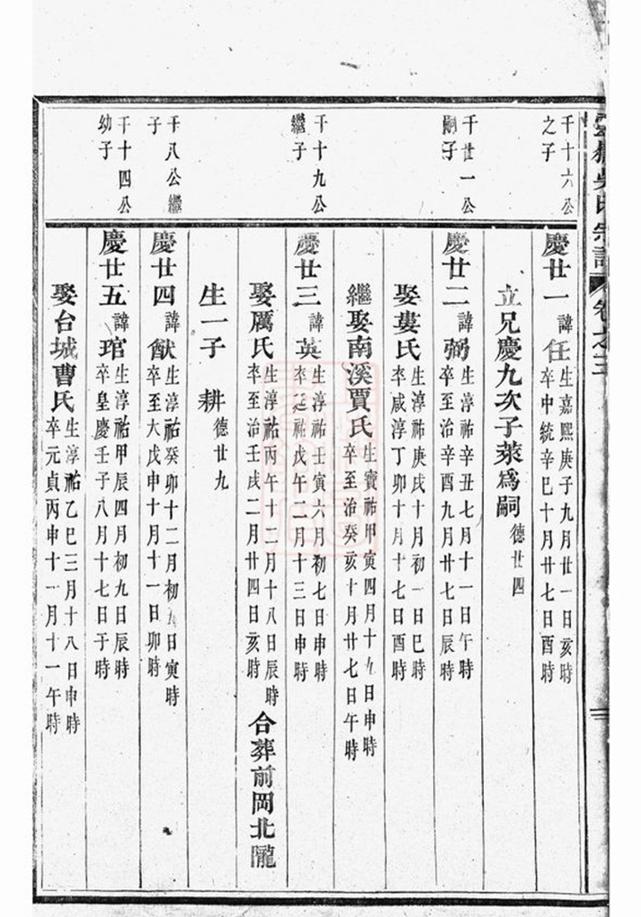 吳氏宗譜 卷之三
千十六公
之子
慶廿一 諱任 生嘉熙庚子九月廿一日亥時
卒中統辛巳十月廿七日酉時
立兄慶九次子萊爲嗣 德廿四
千廿一公
嗣子
慶廿二 諱弼 生淳祐辛丑七月十一日午時
卒至治辛酉九月廿七日辰時
娶婁氏 生淳祐庚戌十月初一日巳時
卒咸淳丁卯十月十七日酉時
繼娶南溪賈氏 生寶祐甲寅四月十九日申時
卒至治癸亥十月廿七日午時
千十九公
繼子
慶廿三 諱英 生淳祐壬寅六月初七日申時
卒延祐戊午二月十三日申時
娶厲氏 生淳祐丙午十二月十八日辰時
卒至治壬戌二月廿四日亥時 合葬前岡北隴
生一子 耕 德廿九
千八公繼
子
慶廿四 諱猷 生淳祐癸卯十二月初九日寅時
卒至大戊申十月十一日卯時
千十四公
幼子
慶廿五 諱琯 生淳祐甲辰四月初九日辰時
卒皇慶壬子八月十七日子時
娶台城曹氏 生淳祐乙巳三月十八日申時
卒元貞丙申十一月十一午時